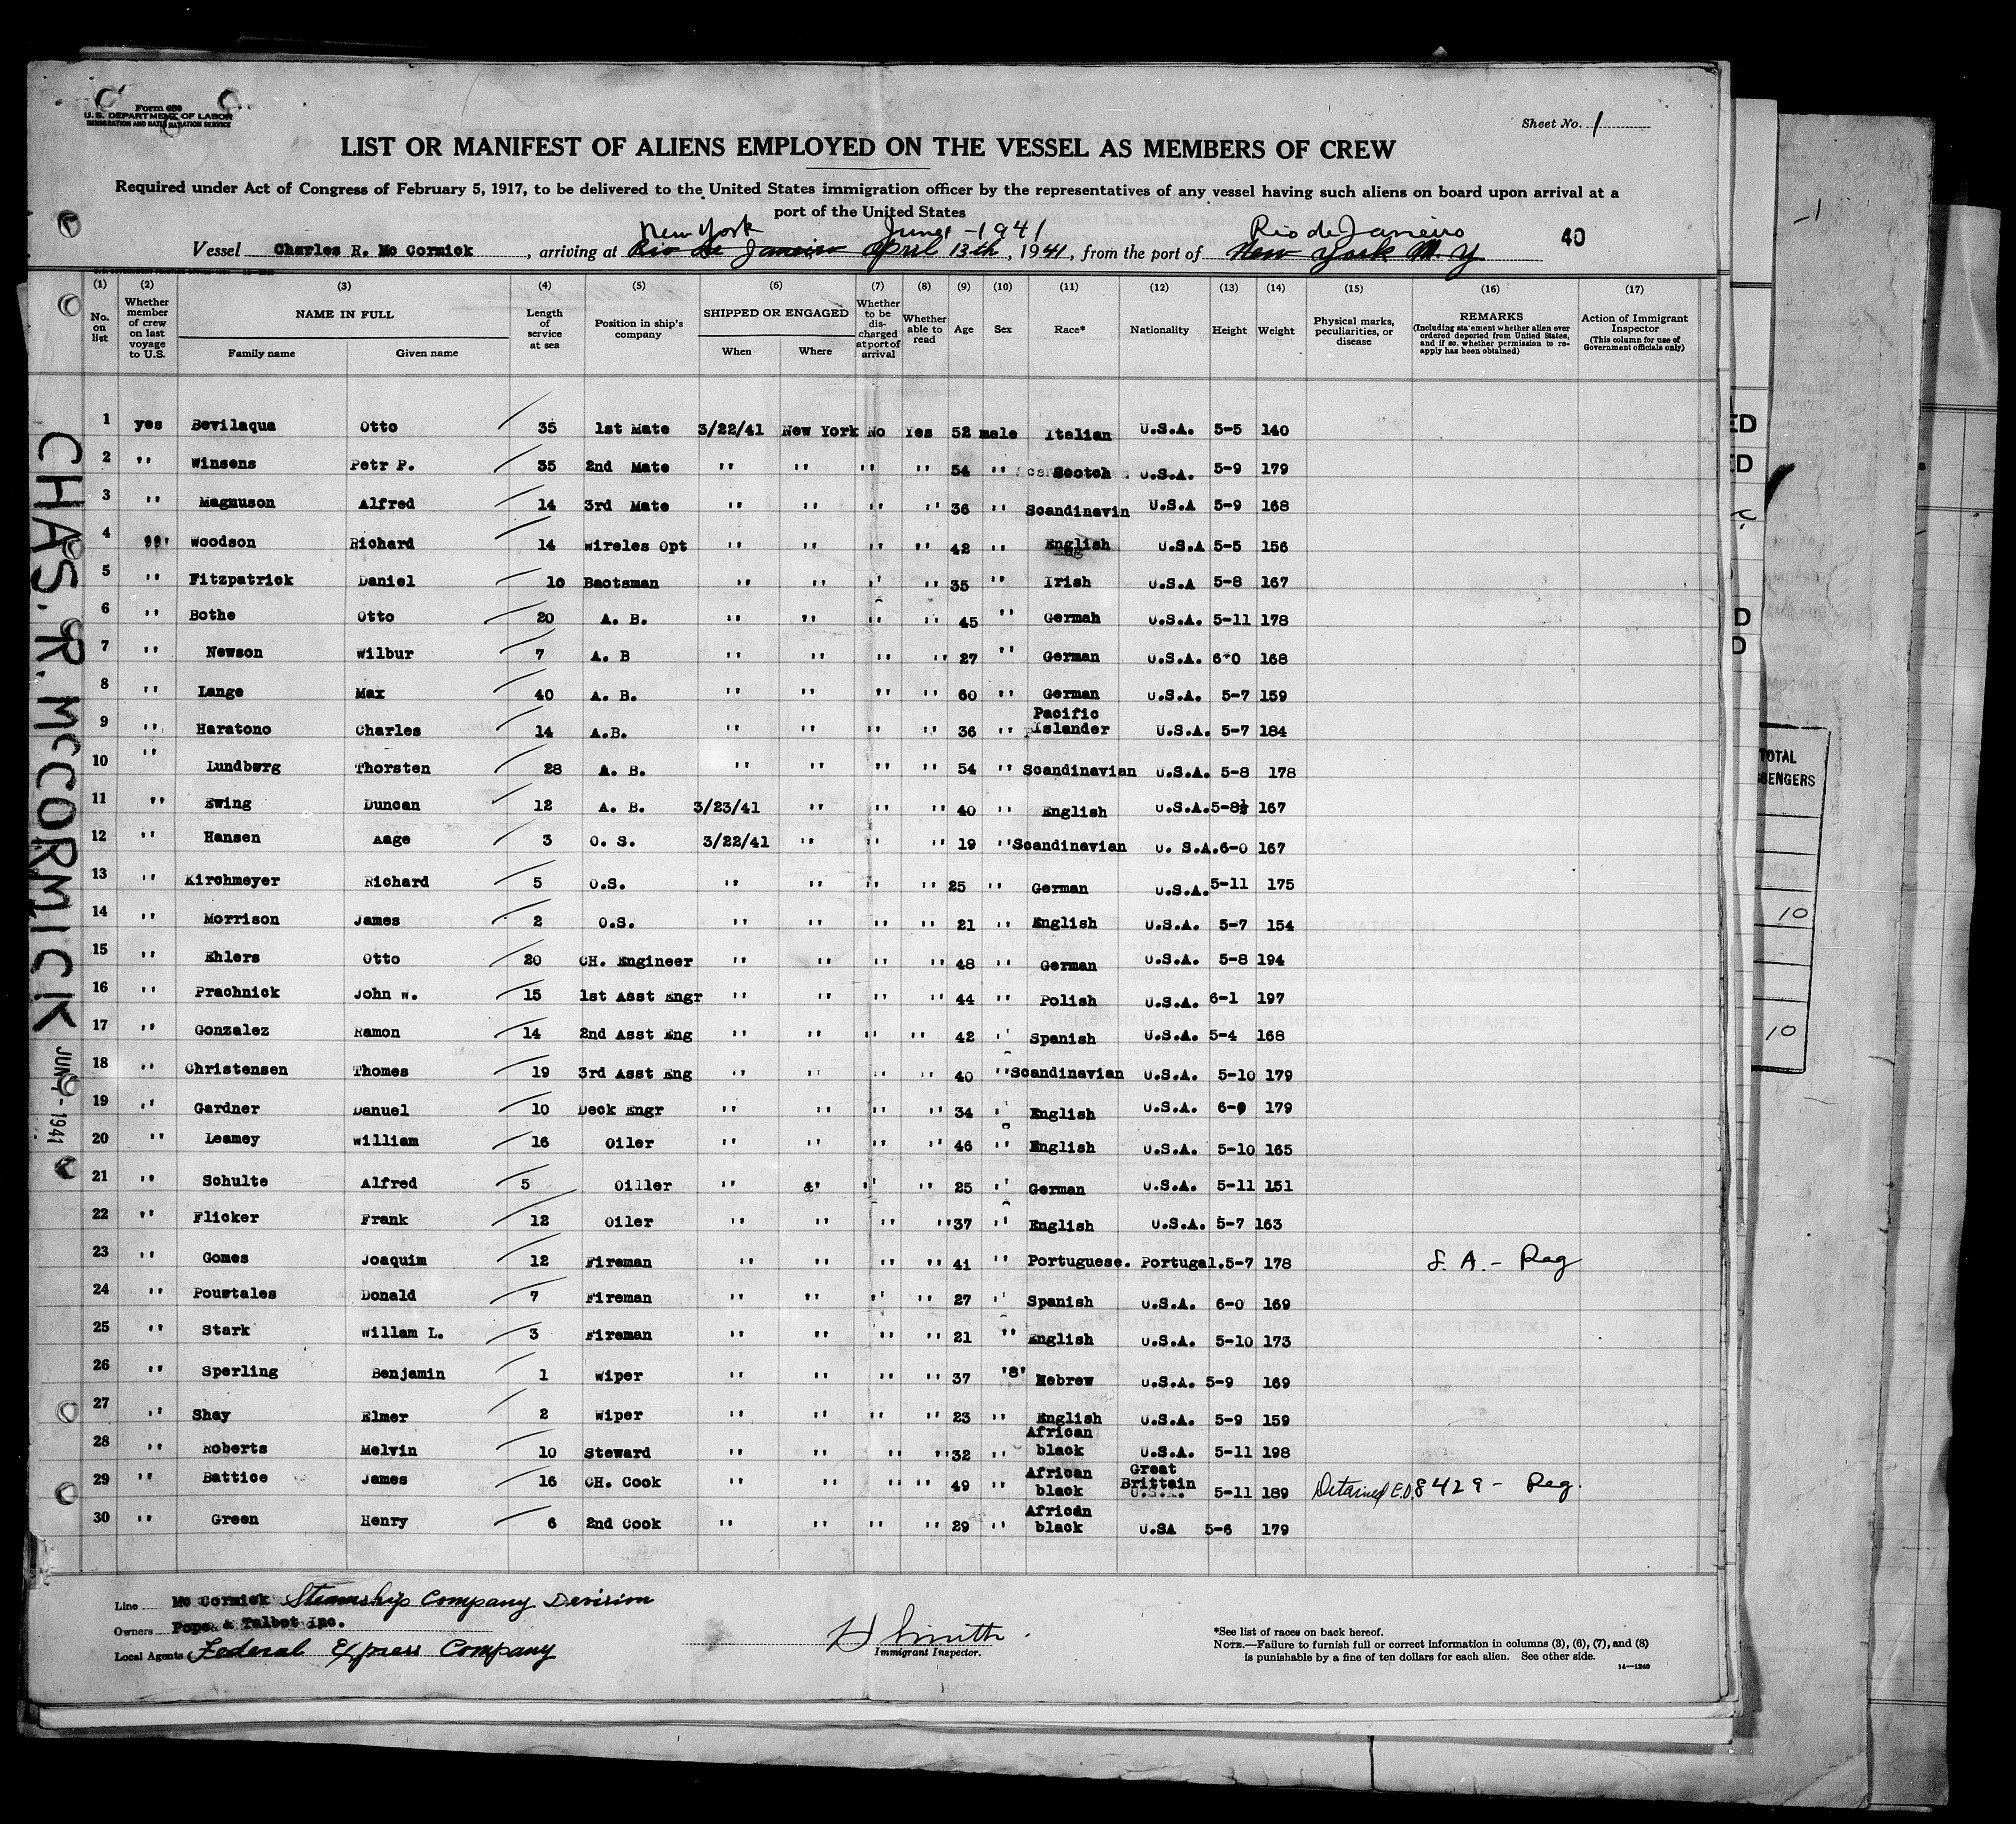 Form 680
U.S. DEPARTMENT OF LABOR
IMMIGRATION AND NATURALIZATION SERVICE
Sheet No. 1
LIST OR MANIFEST OF ALIENS EMPLOYED ON THE VESSEL AS MEMBERS OF CREW
Required under Act of Congress of February 5, 1917, to be delivered to the United States immigration officer by the representatives of any vessel having such aliens on board upon arrival at a
port of the United States
New York June 1 - 1941 Rio de Janeiro
Vessel Charles R. Mc Cormick, arriving at Rio de Janeiro April 13th, 1941, from the port of New York N.Y 40
(1) No. on list
(2) Whether member of crew on last voyage to U.S.
(3) NAME IN FULL Family name Given name
(4) Length of service at sea
(5) Position in ship's company
(6) SHIPPED OR ENGAGED When Where
(7) Whether to be discharged at port of arrival
(8) Whether able to read
(9) Age
(10) Sex
(11) Race*
(12) Nationality
(13) Height
(14) Weight
(15) Physical marks, peculiarities, or disease
(16) REMARKS (Including statement whether alien ever ordered deported from United States, and if so, whether permission to re-apply has been obtained)
(17) Action of Immigrant Inspector (This column for use of Government officials only)
1 yes Bevilaqua Otto 35 1st Mate 3/22/41 New York No Yes 52 male Italian U.S.A. 5-5 140
2 " Winsens Petr P. 35 2nd Mate " " " " 54 " Scotch U.S.A. 5-9 179
3 " Magnuson Alfred 14 3rd Mate " " " " 36 " Scandinavin U.S.A 5-9 168
4 " Woodson Richard 14 Wireles Opt " " " " 42 " English U.S.A 5-5 156
5 " Fitzpatrick Daniel 10 Baotsman " " " " 35 " Irish U.S.A 5-8 167
6 " Bothe Otto 20 A. B. " " " " 45 " German U.S.A. 5-11 178
7 " Newson Wilbur 7 A. B " " " " 27 " German U.S.A. 6-0 168
8 " Lange Max 40 A. B. " " " " 60 " German U.S.A. 5-7 159
9 " Haratono Charles 14 A.B. " " " " 36 " Pacific Islander U.S.A. 5-7 184
10 " Lundberg Thorsten 28 A. B. " " " " 54 " Scandinavian U.S.A. 5-8 178
11 " Ewing Duncan 12 A. B. 3/23/41 " " " 40 " English U.S.A. 5-8½ 167
12 " Hansen Aage 3 O. S. 3/22/41 " " " 19 " Scandinavian U. S.A. 6-0 167
13 " Kirchmeyer Richard 5 O.S. " " " " 25 " German U.S.A. 5-11 175
14 " Morrison James 2 O.S. " " " " 21 " English U.S.A. 5-7 154
15 " Ehlers Otto 20 CH. Engineer " " " " 48 " German U.S.A. 5-8 194
16 " Prachnick John W. 15 1st Asst Engr " " " " 44 " Polish U.S.A. 6-1 197
17 " Gonzalez Ramon 14 2nd Asst Eng " " " " 42 " Spanish U.S.A. 5-4 168
18 " Christensen Thomes 19 3rd Asst Eng " " " " 40 " Scandinavian U.S.A. 5-10 179
19 " Gardner Danuel 10 Deck Engr " " " " 34 " English U.S.A. 6-0 179
20 " Leamey William 16 Oiler " " " " 46 " English U.S.A. 5-10 165
21 " Schulte Alfred 5 Oiller " &" " " 25 " German U.S.A. 5-11 151
22 " Flicker Frank 12 Oiler " " " " 37 " English U.S.A. 5-7 163
23 " Gomes Joaquim 12 Fireman " " " " 41 " Portuguese. Portugal. 5-7 178 S. A. - Reg
24 " Pourtales Donald 7 Fireman " " " " 27 " Spanish U.S.A. 6-0 169
25 " Stark Willam L. 3 Fireman " " " " 21 " English U.S.A. 5-10 173
26 " Sperling Benjamin 1 Wiper " " " " 37 '8' Hebrew U.S.A. 5-9 169
27 " Shay Elmer 2 Wiper " " " " 23 " English U.S.A. 5-9 159
28 " Roberts Melvin 10 Steward " " " " 32 " African black U.S.A. 5-11 198
29 " Battice James 16 CH. Cook " " " " 49 " African black Great Brittain U.S.A. 5-11 189 Detained E.D. 8429 - Reg.
30 " Green Henry 6 2nd Cook " " " " 29 " African black U.SA 5-6 179
Line Mc Cormick Steamship Company Devision
Owners Pope & Talbot Inc.
Local Agents Federal Express Company
H Smith
Immigrant Inspector.
*See list of races on back hereof.
NOTE.—Failure to furnish full or correct information in columns (3), (6), (7), and (8)
is punishable by a fine of ten dollars for each alien. See other side.
14—1240
CHAS. R. MCCORMICK
JUN 1 - 1941
ED
ED
D
D
TOTAL
10
10